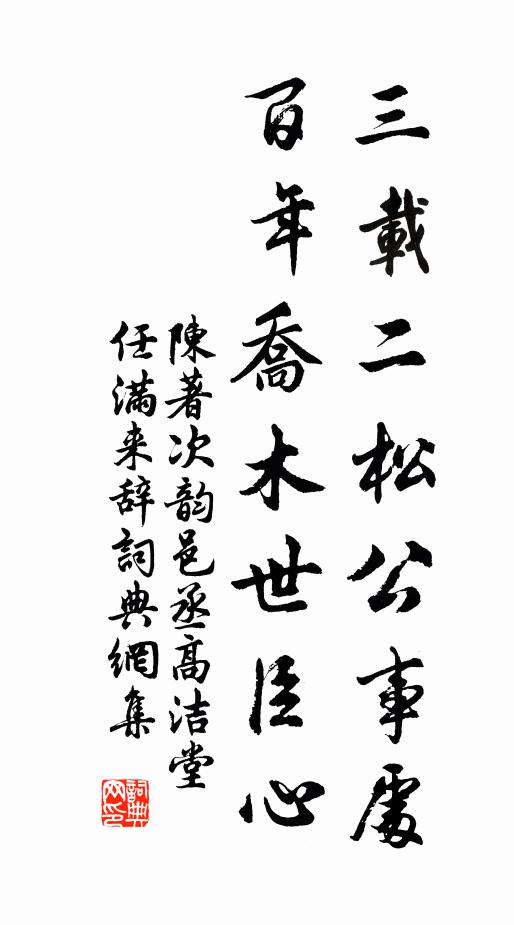 三載二松公事處
百年喬木世臣心
陳著次韵邑丞高洁堂
任滿来辞詞典網集
詞典网印